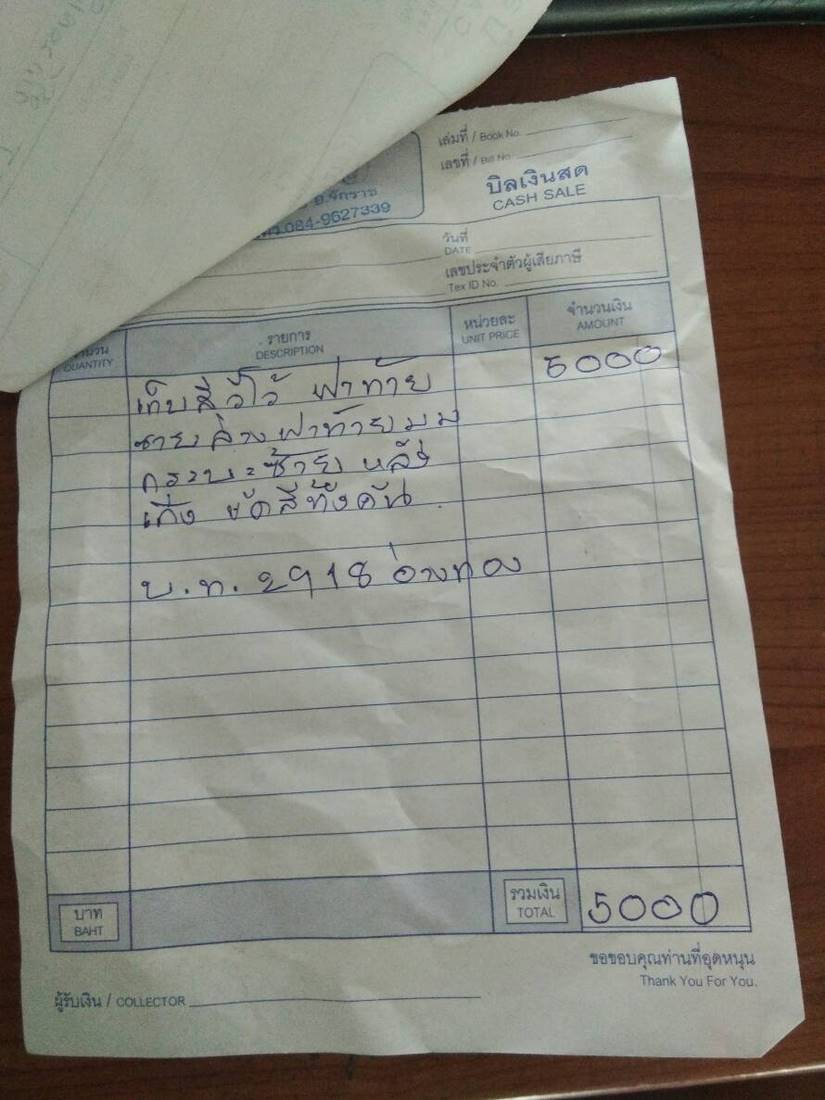 เล่มที่ / Book No.
เลขที่ / Bill No.
บิลเงินสด
CASH SALE
อ.จักราช
084-9627339
วันที่
DATE
เลขประจำตัวผู้เสียภาษี
Tex ID No.
QUANTITY
รายการ
DESCRIPTION
หน่วยละ
UNIT PRICE
จำนวนเงิน
AMOUNT
เก็บสีวีโว้ ฝาท้าย 5000
ชายล่างฝาท้ายมุม
กระบะซ้าย หลัง
เก๋ง ขัดสีทั้งคัน
บ.ท. 2918 อ่างทอง
บาท
BAHT
รวมเงิน
TOTAL
5000
ขอขอบคุณท่านที่อุดหนุน
Thank You For You.
ผู้รับเงิน / COLLECTOR